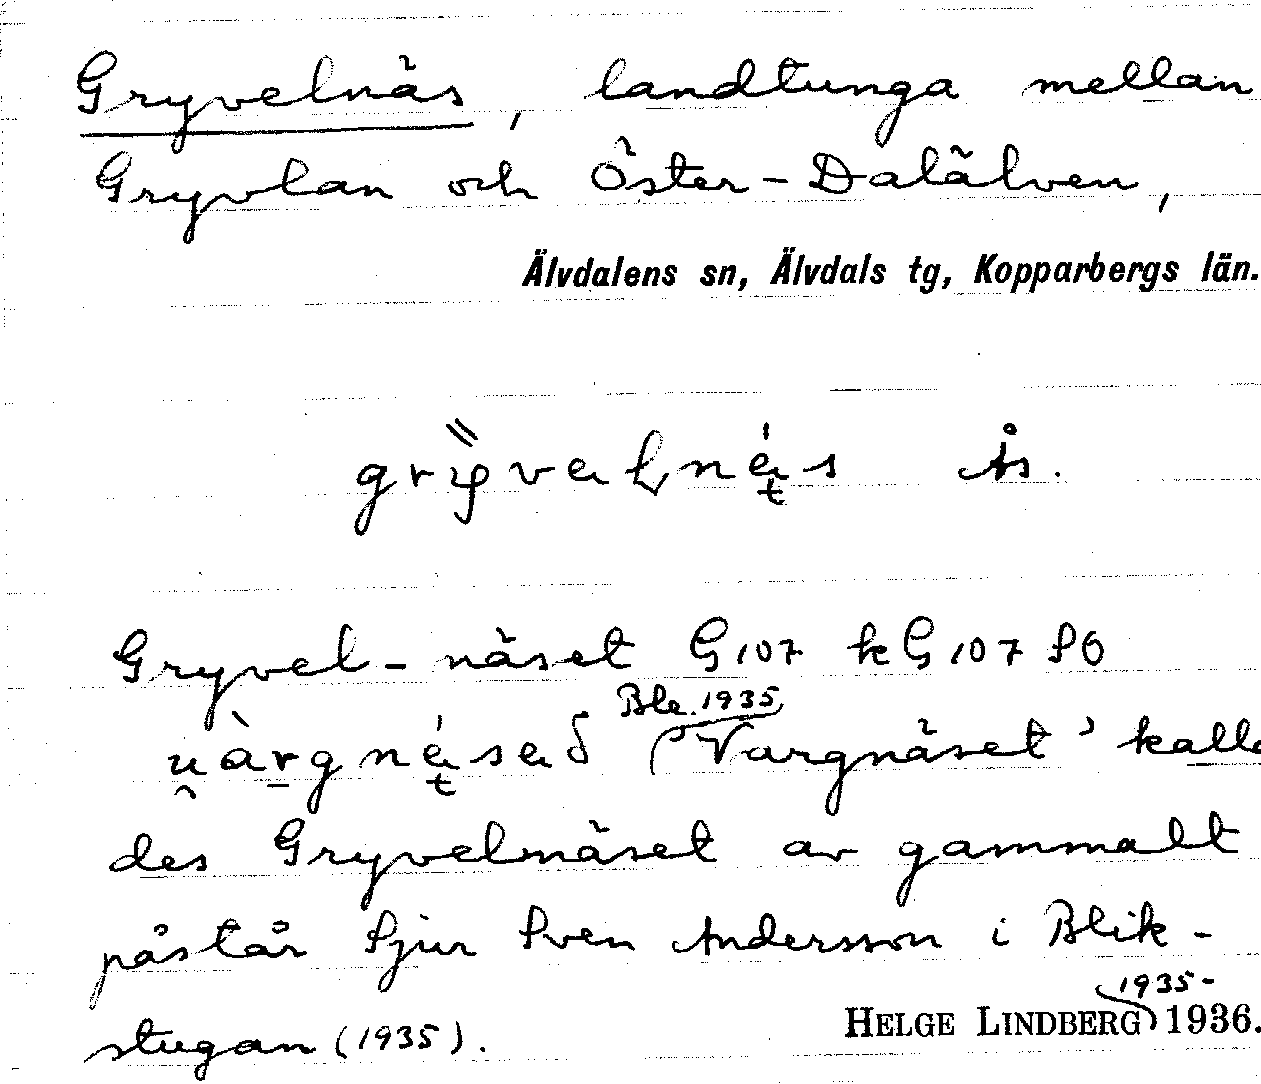 Gryvelnäs, landtunga mellan
Gryvlan och Öster-Dalälven,
Älvdalens sn, Älvdals tg, Kopparbergs län.
Ås.
Gryvel-näset G 107 k G 107 SÖ
Ble. 1935
(Vargnäset' kalla
des Gryvelnäset av gammalt
påstår Sjur Sven Andersson i Blik-
stugan (1935).
1935-
HELGE LINDBERG 1936.